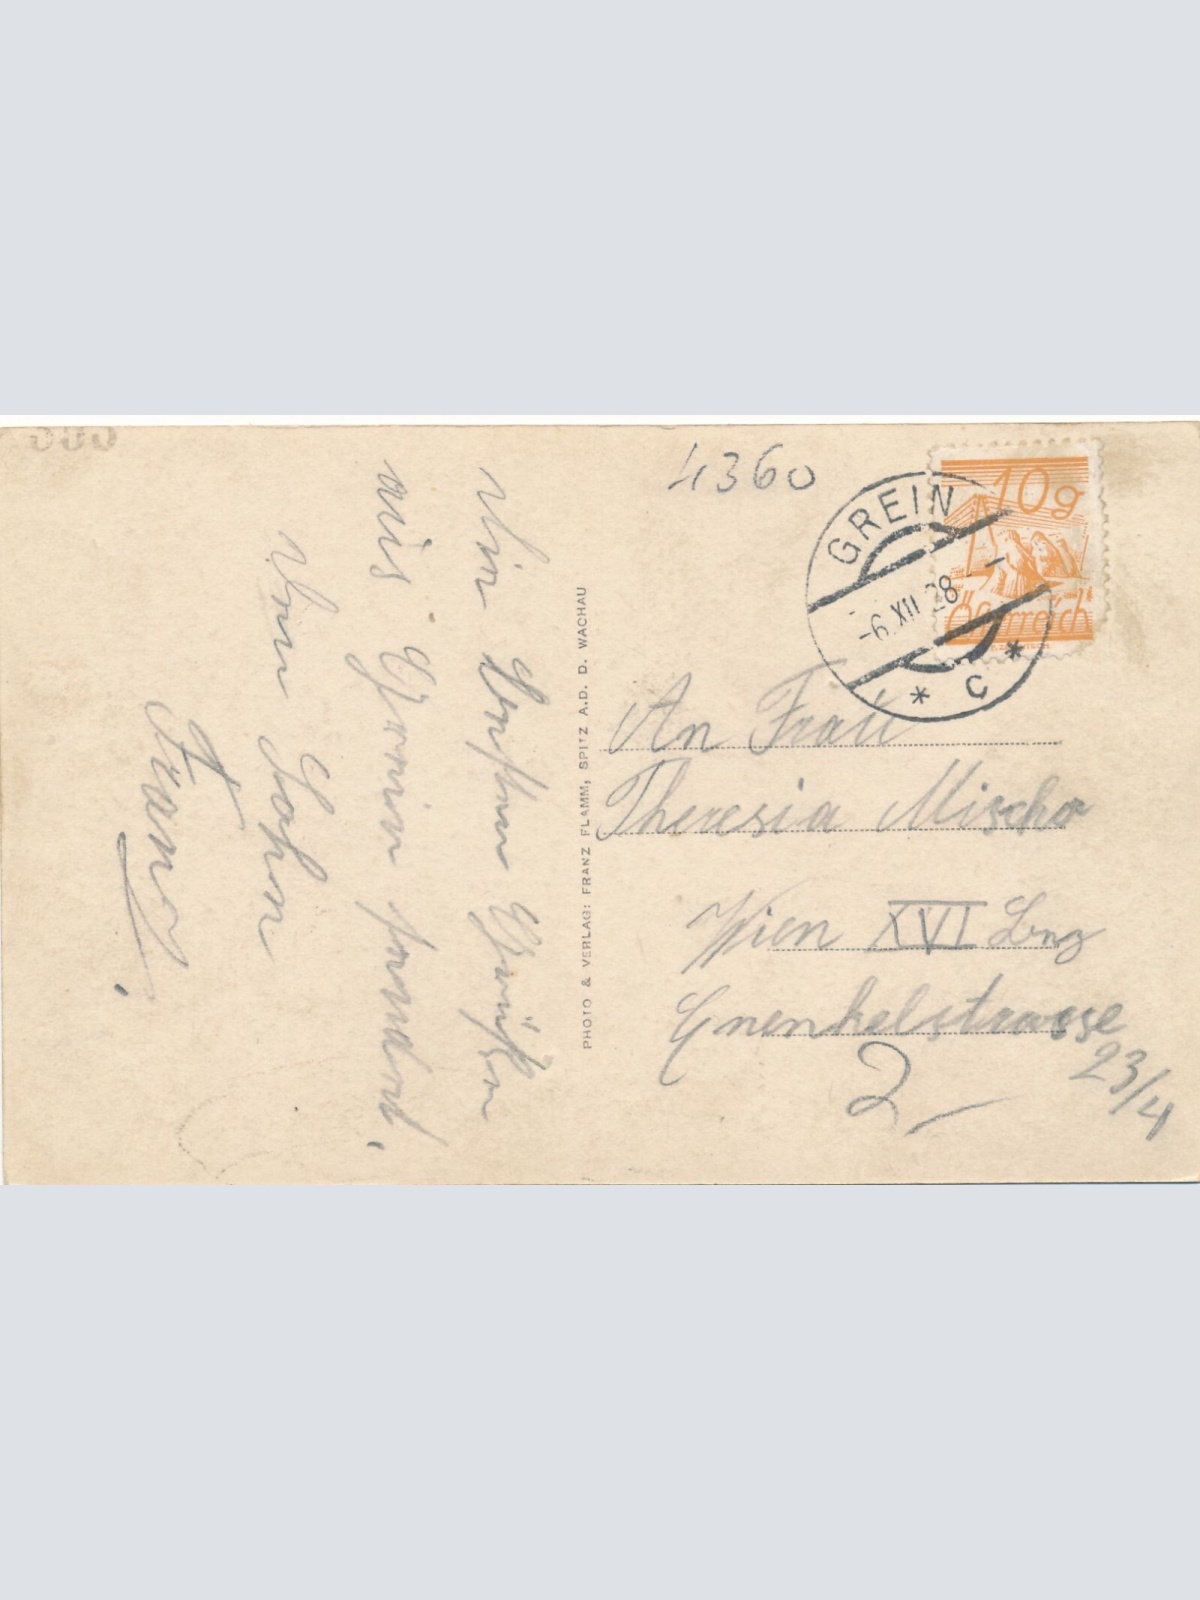 4360
10g
Österreich
GREIN
-6.XII 28
* c *
An Frau
Theresia Mischa
Wien XVI Lenz
Enenkelstrasse
23/4
2
PHOTO & VERLAG: FRANZ FLAMM, SPITZ A.D. D. WACHAU
Die besten Grüße
aus Grein sendet
Ihnen Sohn
Franz